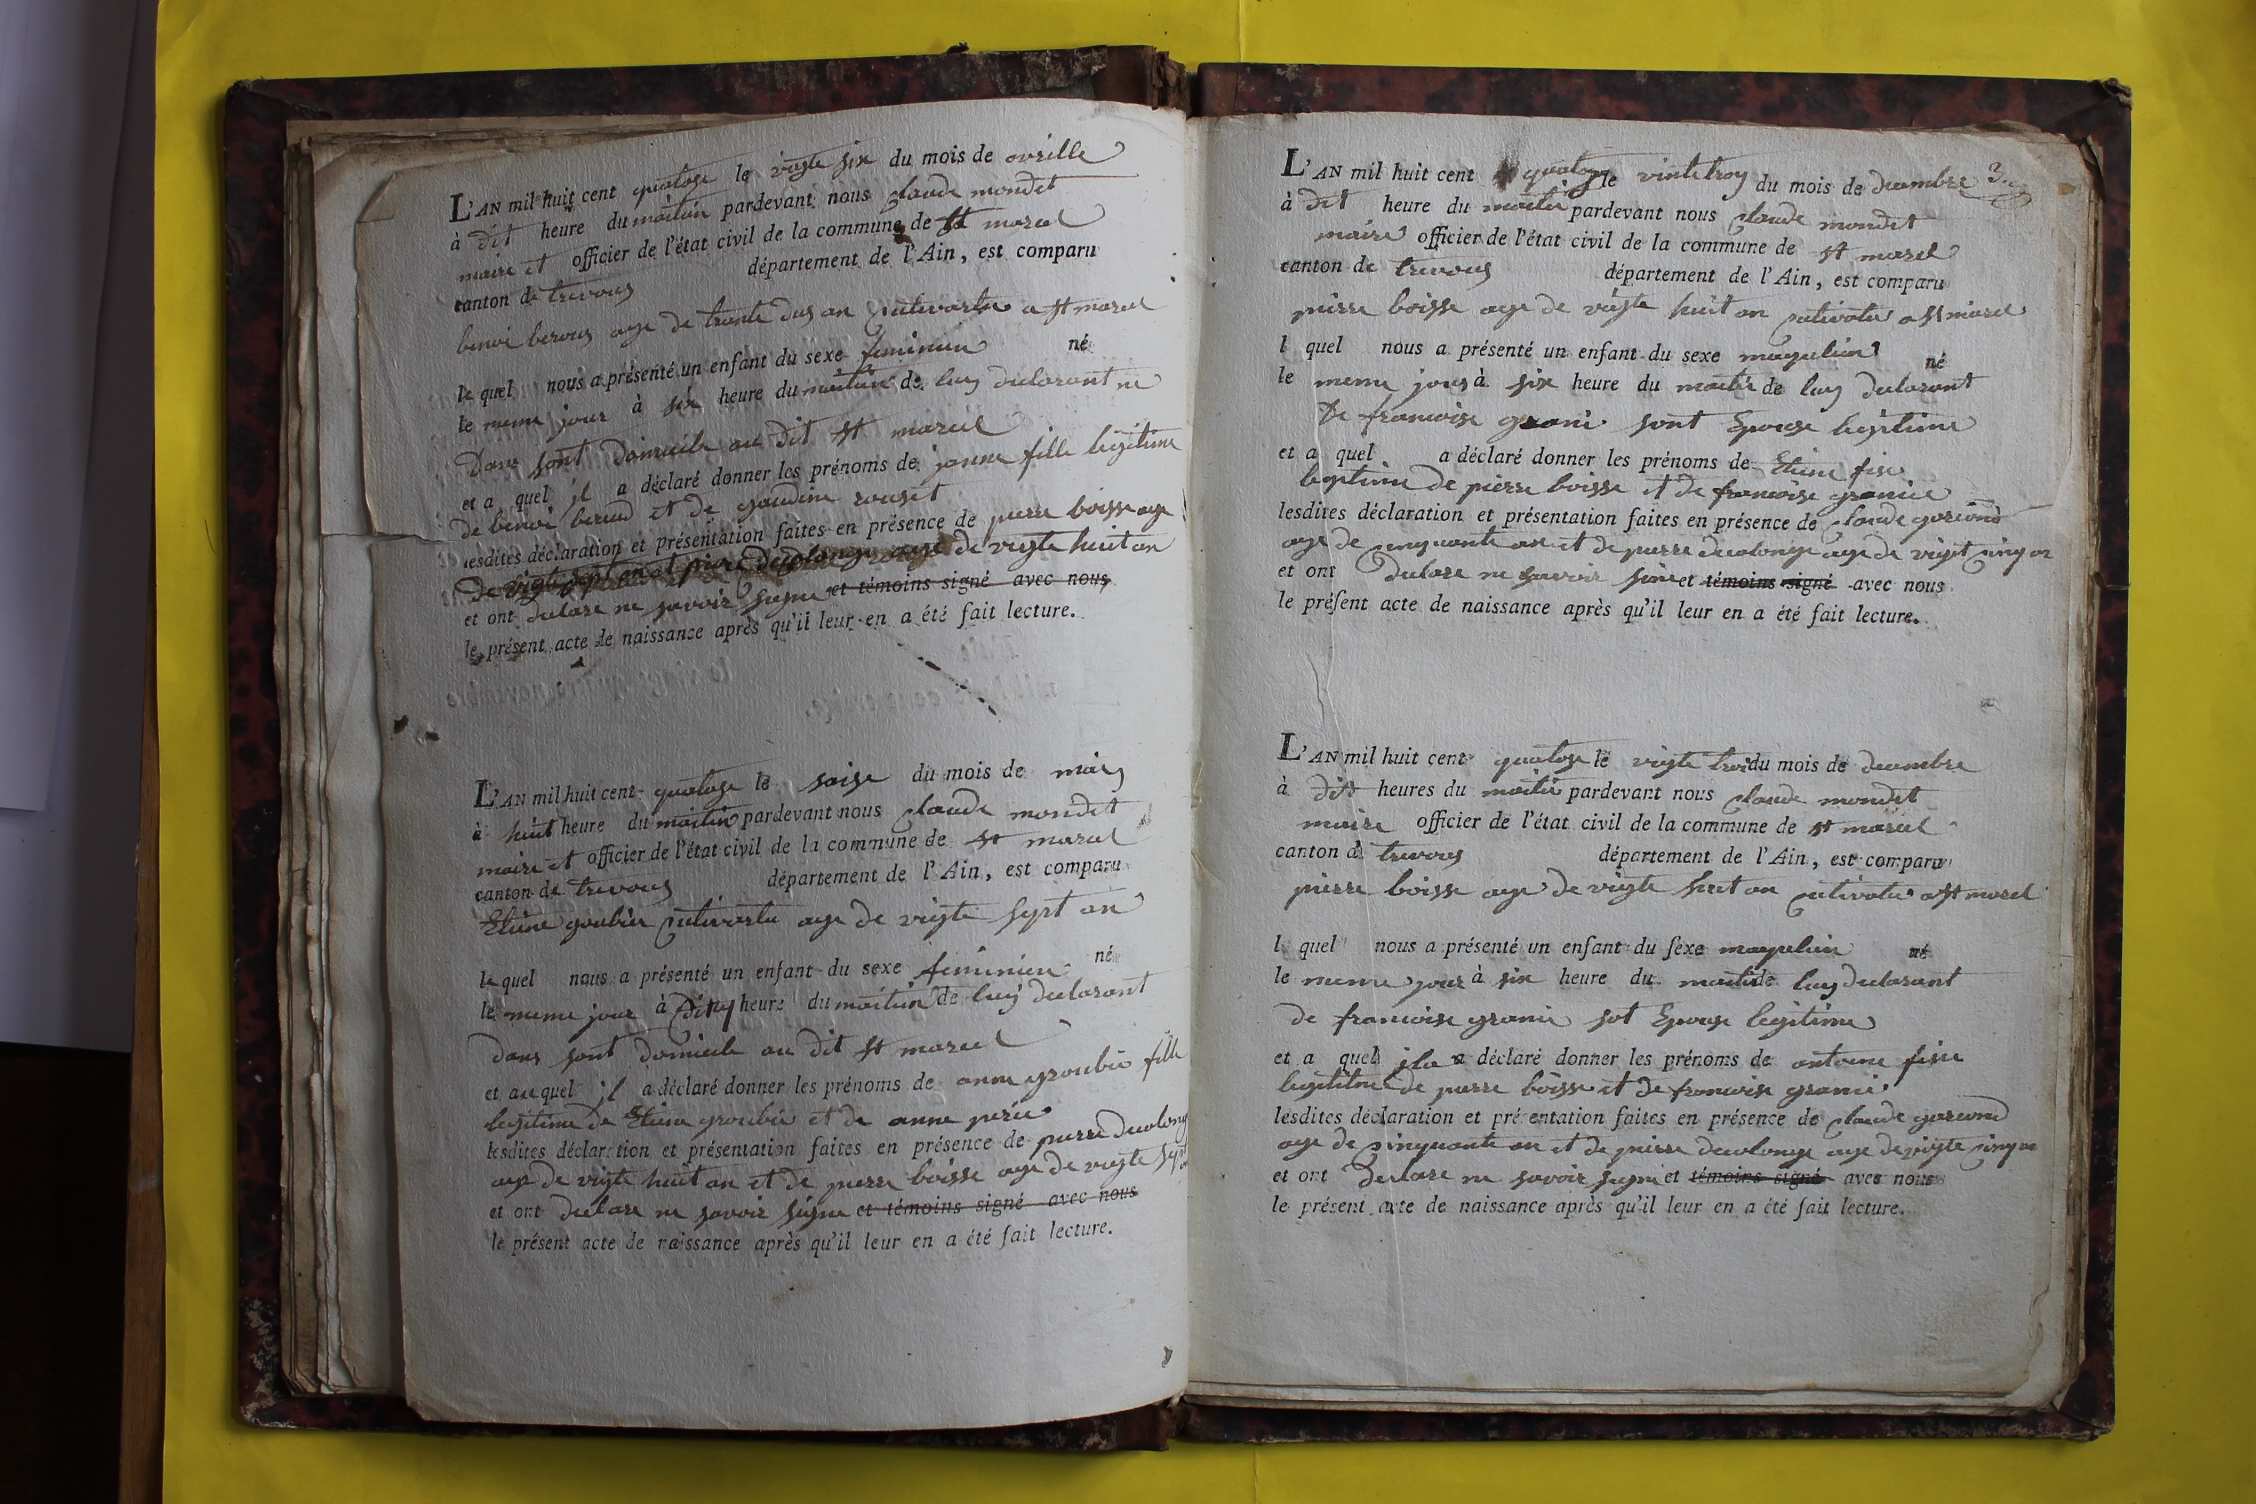 L'AN mil huit cent quatose le vigte six du mois de avrille
à dit heure du maitin pardevant nous claude mondet
maire et officier de l'état civil de la commune de st marcel
canton de trevous département de l'Ain, est comparu
benoi berous age de trante dus an cultivateur a st marcel
le quel nous a présenté un enfant du sexe feminien né
le meme jour à six heure du maitin de luy declarant ne
dans sont domicile au dit st marcel
et a quel il a déclaré donner les prénoms de janne fille legitime
de benoi beroud et de gaudine rouset
lesdites déclaration et présentation faites en présence de pierre boisse age
de vigte sept an et piere decolonge age de vigte huit an
et ont declare ne savoir signe et témoins signé avec nous
le présent acte de naissance après qu'il leur en a été fait lecture.
L'AN mil huit cent quatose le saise du mois de mais
à huit heure du maitin pardevant nous claude mondet
maire et officier de l'état civil de la commune de st marcel
canton de trevous département de l'Ain, est comparu
Etiene goubier cultivateur age de vigte sept an
le quel nous a présenté un enfant du sexe feminien né
le meme jour à heure du maitin de luy declarant
dans sont domicile au dit st marcel
et au quel il a déclaré donner les prénoms de anne groubie fille
legitime de Etiene groubie et de anne
lesdites déclaration et présentation faites en présence de pierre decolong
age de vigte huit an et de pierre boisse age de vigte sept
et ont declare ne savoir signe et témoins signé avec nous
le présent acte de naissance après qu'il leur en a été fait lecture.
3
L'AN mil huit cent quatose le vinte troy du mois de decembre
à dit heure du maitin pardevant nous claude mondet
maire officier de l'état civil de la commune de st marcel
canton de trevous département de l'Ain, est comparu
pierre boisse age de vigte huit an cultivateur a st marcel
l quel nous a présenté un enfant du sexe masculin né
le meme jour à six heure du maitin de luy declarant
De francoise granie sont Epouse legitime
et a quel a déclaré donner les prénoms de Etiene fise
legitime de pierre boisse et de francoise granie
lesdites déclaration et présentation faites en présence de claude
age de cinquante an et de pierre decolonge age de vigt cinq an
et ont declare ne savoir sine et témoins signé avec nous
le présent acte de naissance après qu'il leur en a été fait lecture.
L'AN mil huit cent quatose le vigte trois du mois de decembre
à dit heures du maitin pardevant nous claude mondet
maire officier de l'état civil de la commune de st marcel
canton de trevous département de l'Ain, est comparu
pierre boisse age de vigte huit an cultivateur a st marcel
l quel nous a présenté un enfant du sexe masculin né
le meme jour à six heure du maiti de luy declarant
de francoise granie sot Epouse legitime
et a quel il a a déclaré donner les prénoms de antoine fise
legitime de pierre boisse et de francoise granie
lesdites déclaration et présentation faites en présence de claude
age de cinquante an et de pierre decolonge age de vigte cinq an
et ont declare ne savoir signe et témoins signé avec nous
le présent acte de naissance après qu'il leur en a été fait lecture.